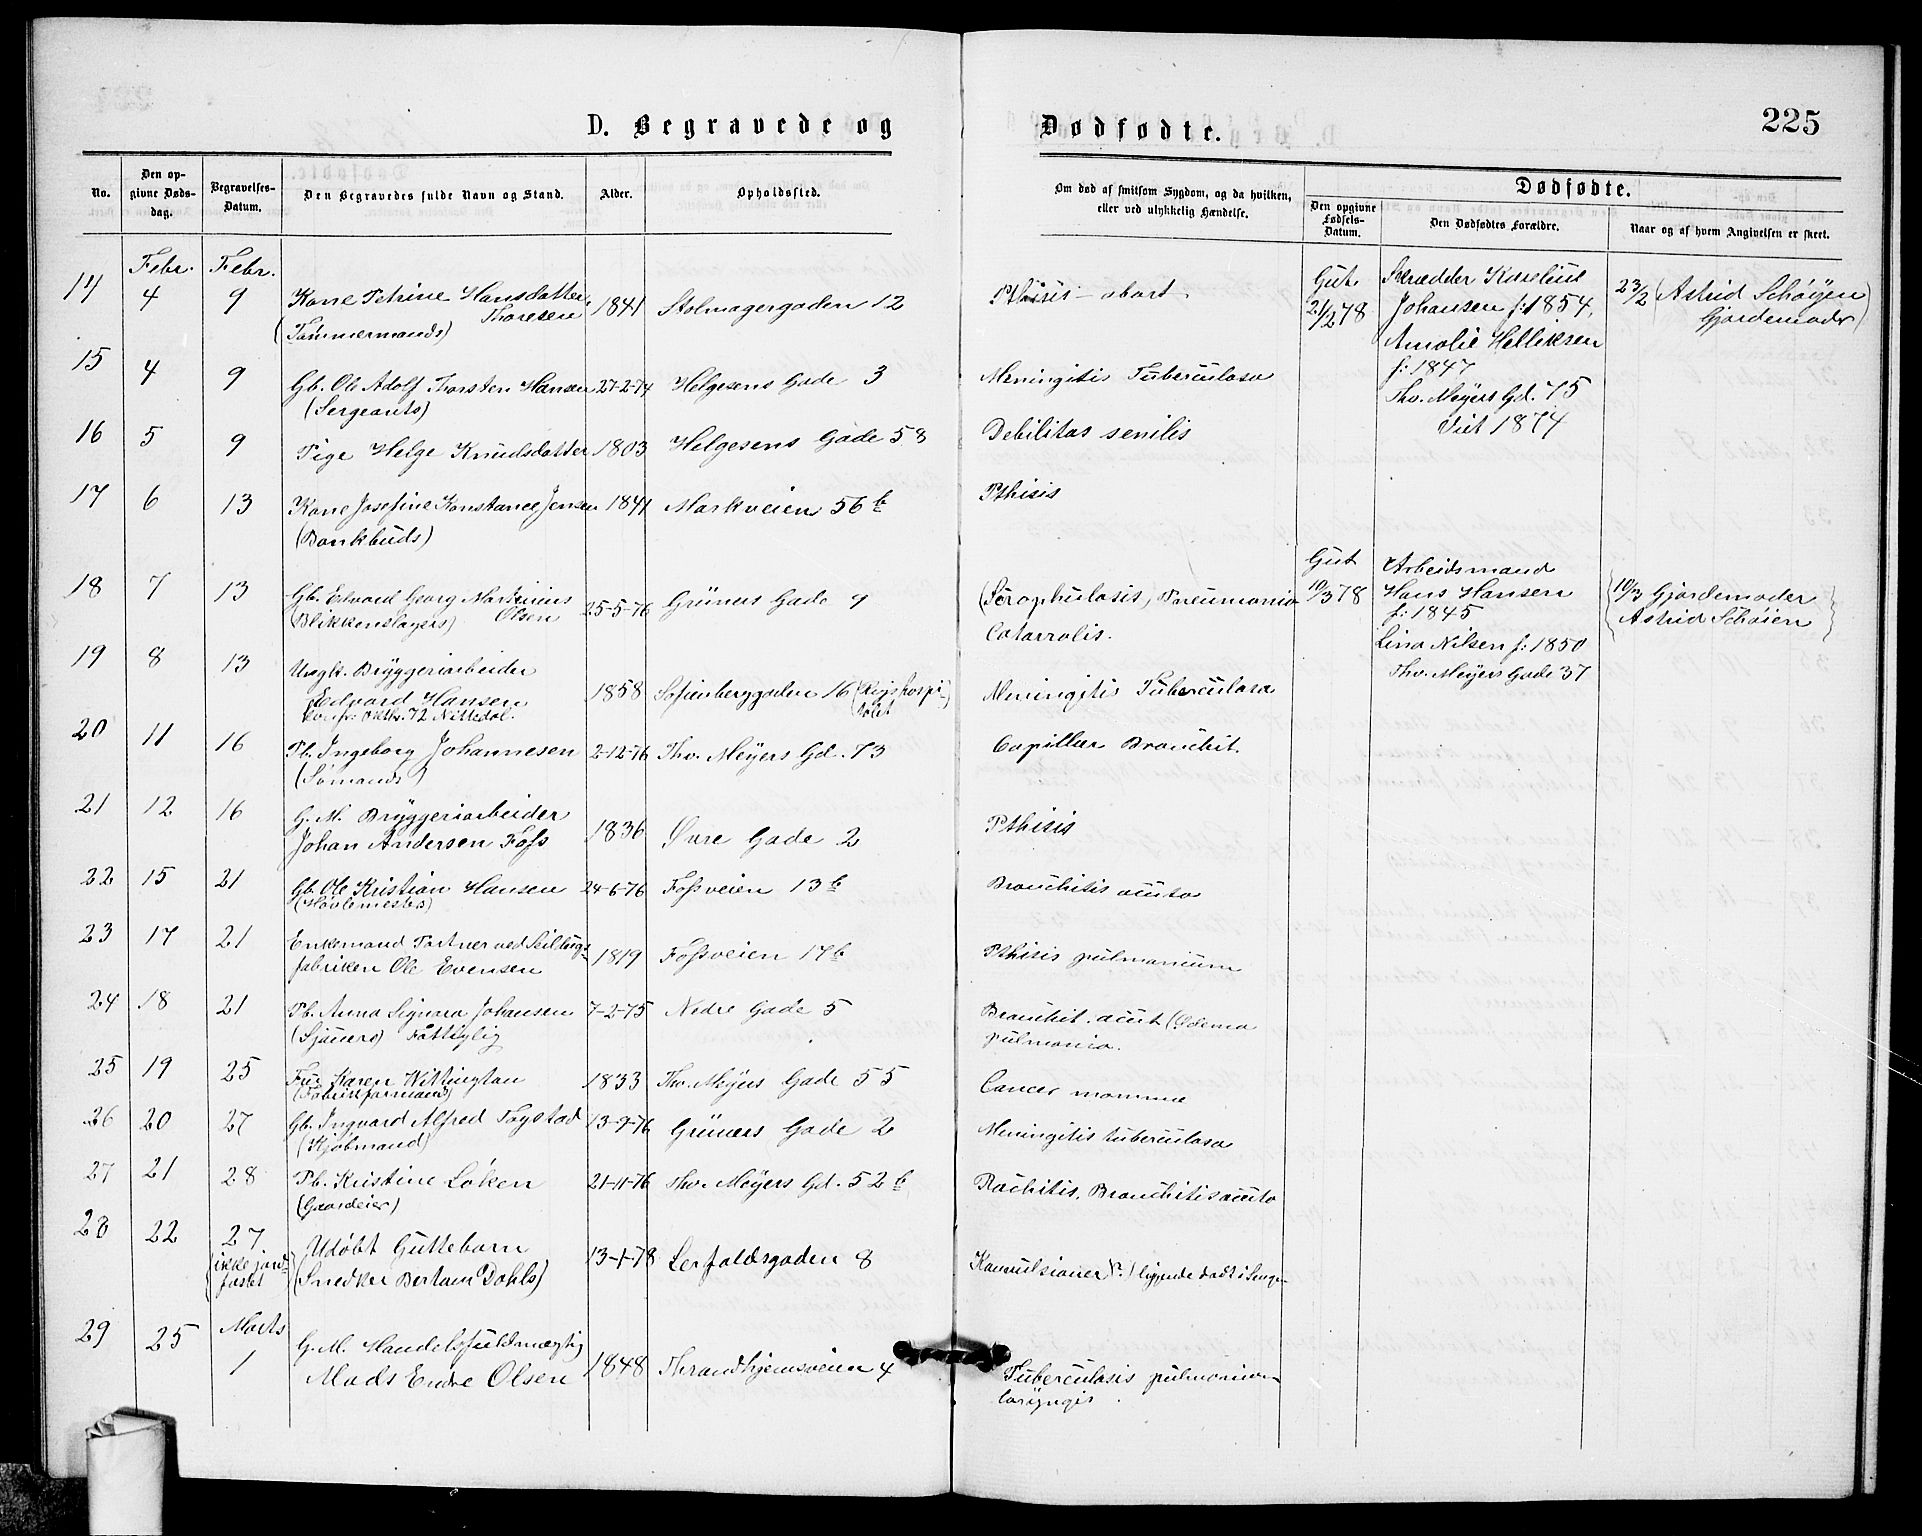 D. Begravede og
Dødfødte.
225
No.
Den opgivne Dødsdag.
Begravelses-Datum.
Den Begravedes fulde Navn og Stand.
Alder.
Opholdssted.
Om død af smitsom Sygdom, og da hvilken, eller ved ulykkelig Hændelse.
Dødfødte.
Den opgivne Fødsels-Datum.
Den Dødfødtes Forældre.
Naar og af hvem Angivelsen er skeet.
Febr. Febr.
14 4 9 Kone Petrine Hansdatter Thoresen 1841 Stolmagergaden 12 Pthisis - abort.
(Tømmermands)
Gut 2/278 Skrædder
Johansen f: 1854,
Amalie Helliksen
f: 1847
Thv. Meyers Gd. 75
Viet 1874
23/2 (Astrid Schøyen
Gjordemoder)
15 4 9 Gb. Ole Adolf Thorsten Hansen 27-2-74 Helgesens Gade 3 Meningitis Tuberculosa
(Sergeants)
16 5 9 Pige Helge Knudsdatter 1803 Helgesens Gade 58 Debilitas senilis
17 6 13 Kone Josefine Konstance Jensen 1841 Markveien 56 b Pthisis
(Bankbuds)
18 7 13 Gb. Edvard Georg Martinius Olsen 25-5-76 Grüners Gade 9 (Scrophulosis, Pneumonia
(Blikkenslagers) Catarralis.
Gut 10/378 Arbeidsmand
Hans Hansen
f: 1845
Lina Nilsen f: 1850
Thv. Meyers Gade 37
10/3 Gjordemoder
Astrid Schøien
19 8 13 Ungk. Bryggeriarbeider
Edvard Hansen 1858 Sofienberggaden 16 (Rigshospitalet Meningitis Tuberculosa
72 Nittedal.
20 11 16 Pb. Ingeborg Johannesen 2-12-76 Thv. Meyers Gd. 73 Capillær Bronchit.
(Sømands)
21 12 16 G. M. Bryggeriarbeider
Johan Andersen Foss 1836 Øvre Gade 2 Pthisis
22 15 21 Gb. Ole Kristian Hansen 24-6-76 Fossveien 13 b Bronchitis acuta
(Høvlemester)
23 17 21 Enkemand Portner ved Seildugs-
fabriken Ole Evensen 1819 Fossveien 17 b Pthisis pulmonium
24 18 21 Pb. Anna Signora Johansen 7-2-75 Nedre Gade 5 Bronchit. acut (Oedema
(Sjouers) Fattiglig pulmonia.
25 19 25 Fru Karen Wittington 1833 Thv. Meyers Gade 55 Cancer mamma
(Fabrikformand)
26 20 27 Gb. Ingvard Alfred Fogstad 13-9-76 Grüners Gade 2 Meningitis tuberculosa
(Kjøbmand)
27 21 28 Pb. Kristine Løken 21-11-76 Thv. Meyers Gd. 52 b Rachitis, Bronchitis acuta
(Gaardeier)
28 22 27 Udøbt Guttebarn 13-1-78 Lerfaldsgaden 8 Konvulsioner (?) liggende dødt i Sengen
(ikke jordfæstet) (Snedker Bertam Dahls)
Marts
29 25 1 G. M. Handelsfuldmægtig
Mads Endre Olsen 1848 Throndhjemsveien 4 Tuberculosis pulmonium
laryngis.